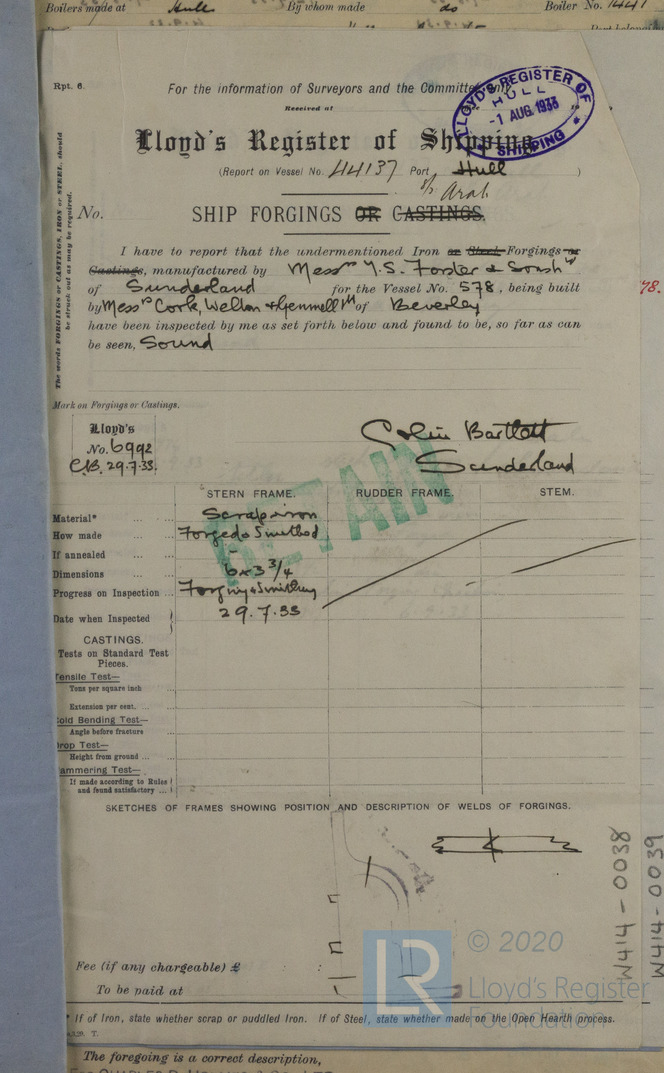 Boilers made at Hull By whom made do Boiler No. 16441
Rpt. 6.
For the information of Surveyors and the Committee only
Received at
LLOYD'S REGISTER OF SHIPPING
HULL
-1 AUG 1933
Lloyd's Register of Shipping
(Report on Vessel No. 44137 Port Hull )
s/s Arab
No.
SHIP FORGINGS OR CASTINGS.
The words FORGINGS or CASTINGS, IRON or STEEL, should be struck out as may be required.
I have to report that the undermentioned Iron or Steel Forgings or
Castings, manufactured by Messrs Y.S. Forster & Sons
of Sunderland for the Vessel No. 578, being built
by Messrs Cook, Welton & Gemmell Ld of Beverley
have been inspected by me as set forth below and found to be, so far as can
be seen, Sound
78.
Mark on Forgings or Castings.
Lloyd's
No. 6992
C.B. 29.7.33.
Colin Bartlett
Sunderland
RETAIN
STERN FRAME. RUDDER FRAME. STEM.
Material* ... ... Scrap iron
How made ... ... Forged & Smithed
If annealed ... ... -
Dimensions ... ... 6 x 3 3/4
Progress on Inspection ... Forging & Smithing
Date when Inspected 29.7.33
CASTINGS.
Tests on Standard Test
Pieces.
Tensile Test—
Tons per square inch ...
Extension per cent. ... ...
Cold Bending Test—
Angle before fracture ...
Drop Test—
Height from ground ... ...
Hammering Test—
If made according to Rules
and found satisfactory ...
SKETCHES OF FRAMES SHOWING POSITION AND DESCRIPTION OF WELDS OF FORGINGS.
W414-0038
W414-0039
Fee (if any chargeable) £ :
To be paid at
LR
© 2020
Lloyd's Register
Foundation
* If of Iron, state whether scrap or puddled Iron. If of Steel, state whether made on the Open Hearth process.
The foregoing is a correct description,